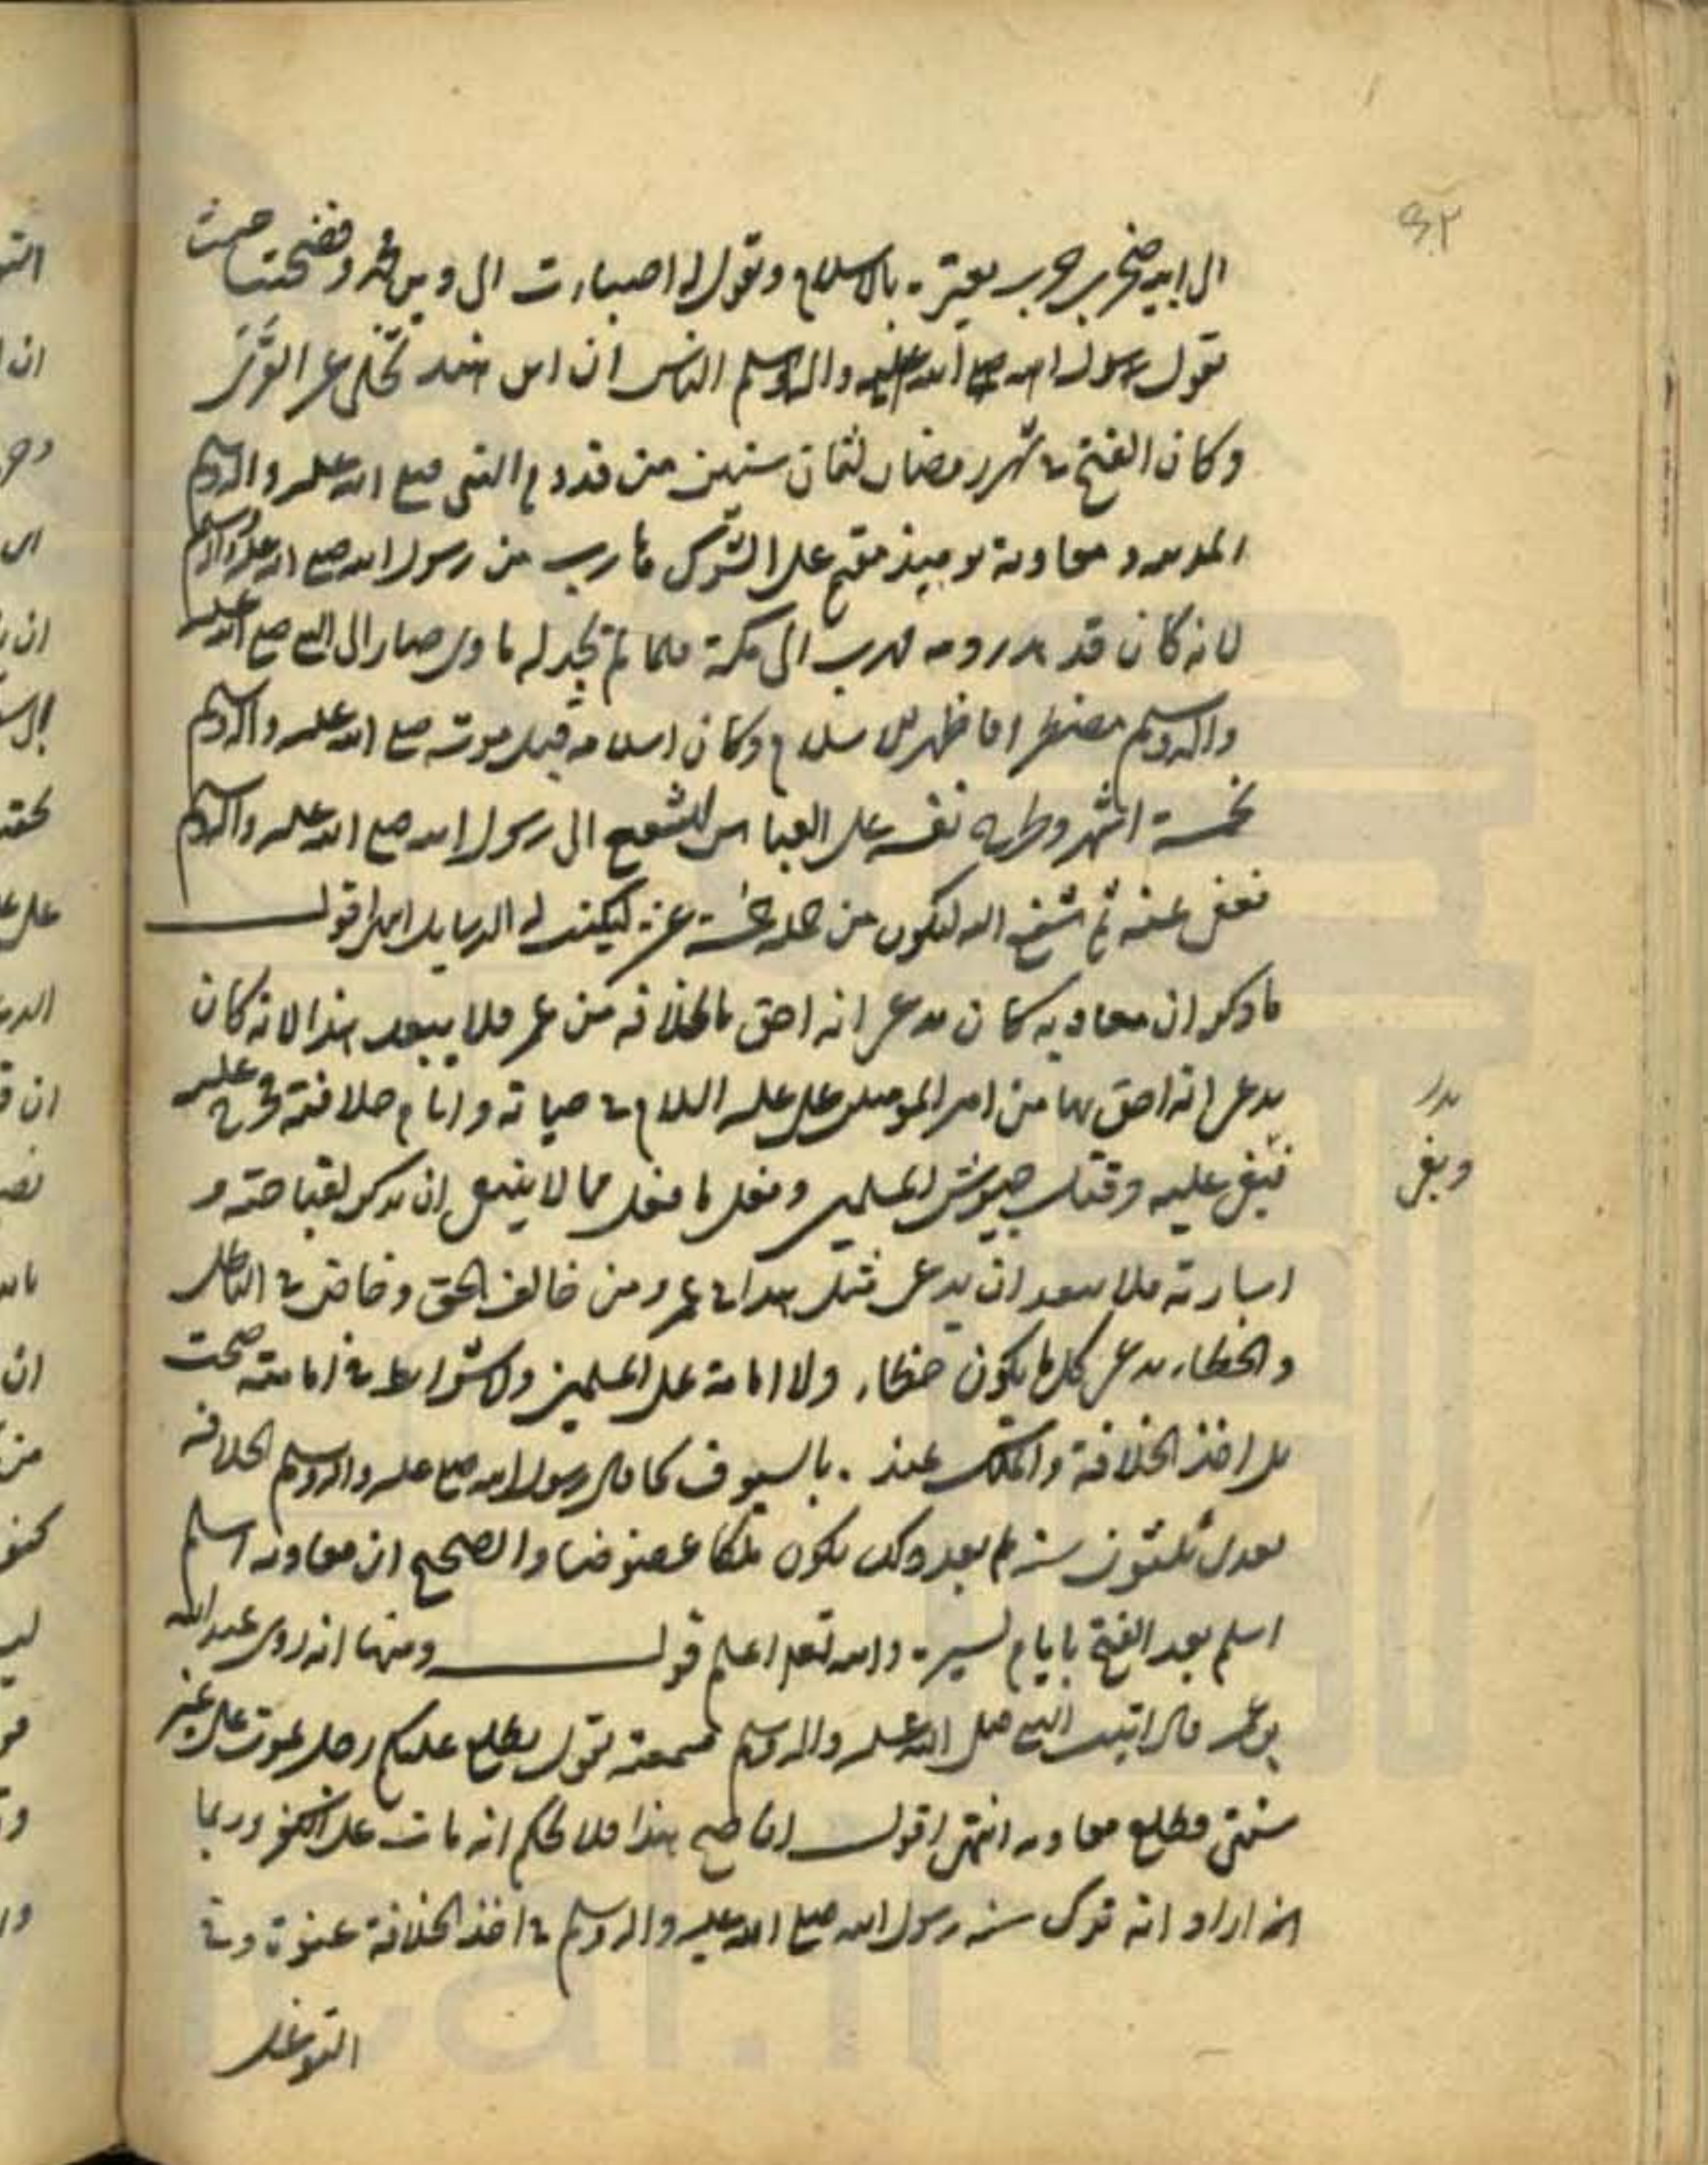 ٤٢
الى ابيه صخر بن حرب يعيّره بالاسلام وتقول له اصباءت الى دين محمد وفضحتنا حيث
تقول رسول الله صلع الله عليه واله وسلم الناس ان ابن هند تخلى عن العزّى
وكان الفتح في شهر رمضان لثمان سنين من قدوم النبى صلع الله عليه واله وسلم
المدينه ومعاوية يوميذ مقيم على الشرك هارب من رسول الله صلع الله عليه واله وسلم
لانه كان قد هدر دمه فهرب الى مكة فلما لم يجد له ماوى صار الى النبي صلع الله عليه
واله وسلم مضطرا فاظهر الاسلام وكان اسلامه قبل موته صلع الله عليه واله وسلم
بخمسة اشهر وطرح نفسه على العباس ليشفع الى رسول الله صلع الله عليه واله وسلم
فعفى عنه ثم شفع اليه ليكون من جملة خمسة عشر ليكتب له الرسايل اقول
ما ذكر ان معاويه كان يدعى انه احق بالخلافه من عمر فلا يبعد هذا لانه كان
يدعى انه احق بها من امير المومنين على عليه السلام في حياته وايام خلافته وخرج عليه
فبغى عليه وقتل جيوش المسلمين وفعل ما فعل مما لا ينبغى ان يذكر لقباحته و
اسبارته فلا يبعد ان يدعى مثل هذا في عمر ومن خالف الحق وخاض في الباطل
والخطاء يدعى كل ما يكون خطاء ولا امامة على المسلمين ولا شرايط في امامته صحت
بل اخذ الخلافة والملك عنده بالسيوف كما قال رسول الله صلع عليه واله وسلم الخلافه
بعدى ثلثون سنه ثم بعد ذلك يكون ملكا عضوضا والصحيح ان معاويه اسلم
اسلم بعد الفتح بايام يسيره والله تعلم اعلم قول ومنها انه روى عبد الله
بن عمر قال اتيت النبي صلى الله عليه واله وسلم فسمعته يقول يطلع عليكم رجل يموت على غير
سنتى فطلع معاويه انتهى اقول ان صح هذا فلا نحكم انه مات على الكفر وربما
انه اراد انه ترك سنه رسول الله صلع الله عليه واله وسلم في اخذ الخلافة عنوة وفي
التوغل
بدر
وبغى